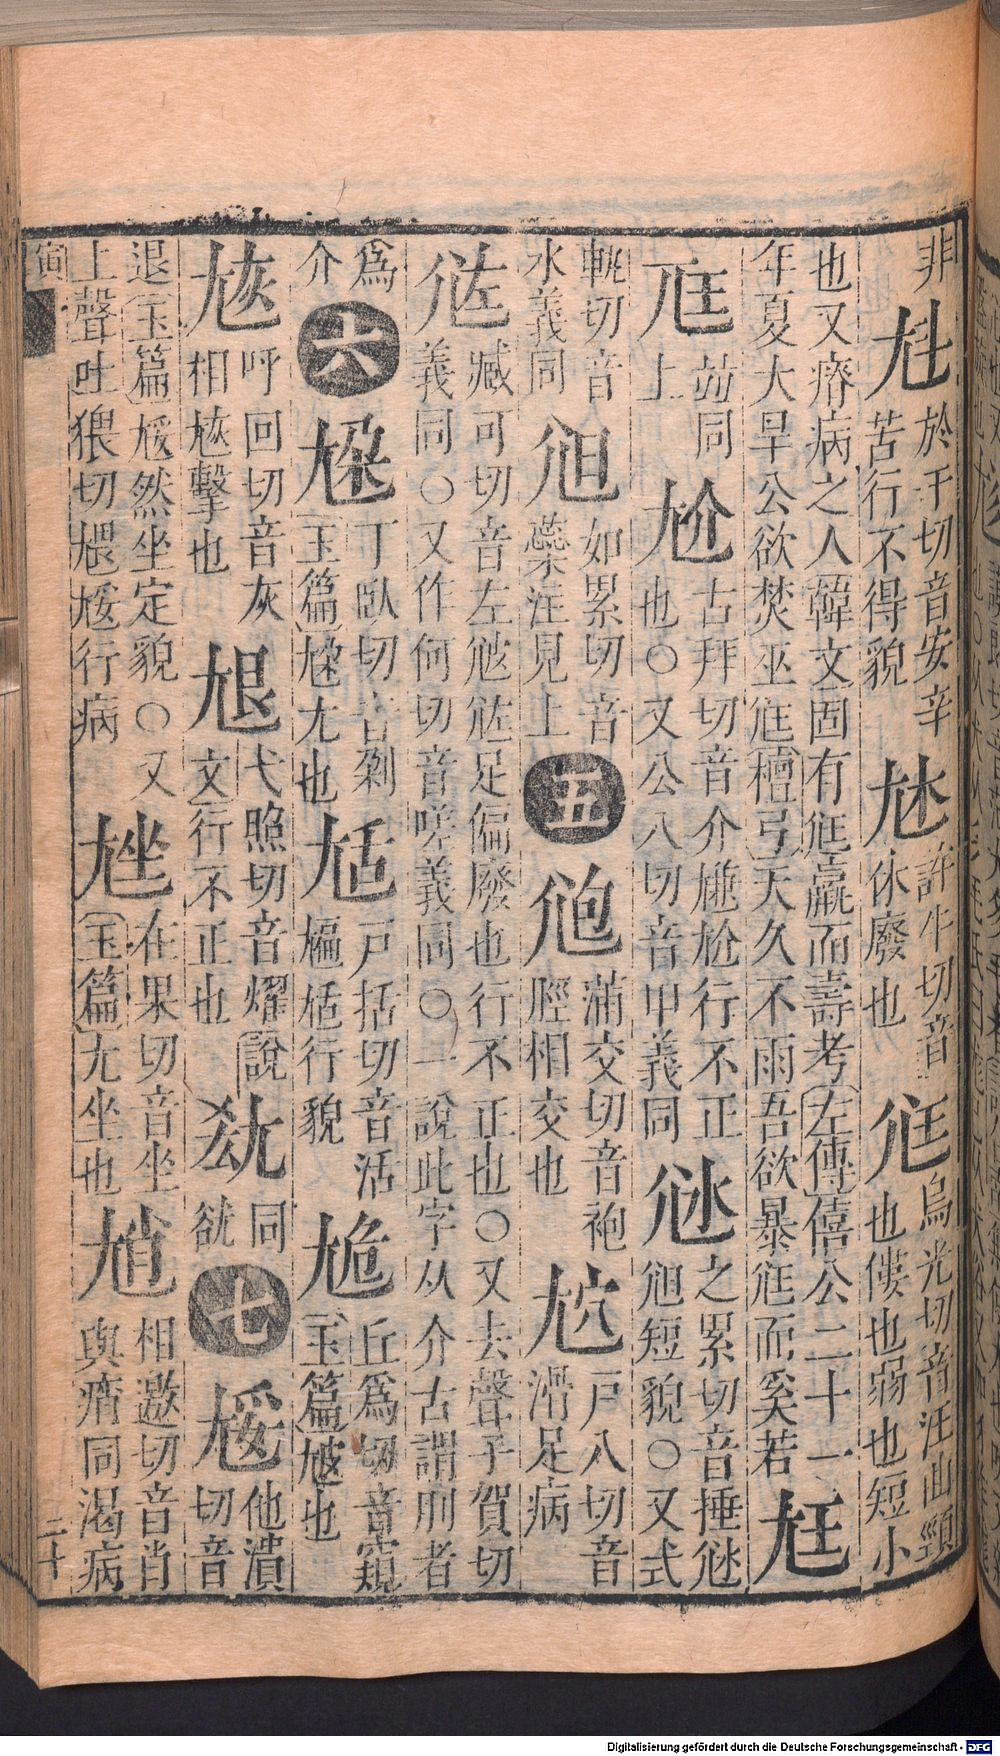 非
尪於干切音安辛
苦行不得貌
尮許牛切音
休廢也
尩烏光切音汪曲頸
也僂也弱也短小
也又瘠病之人韓文固有尩羸而壽考左傳僖公二十一
年夏大旱公欲焚巫尩檀弓天久不雨吾欲暴尩而奚若
尫
𡯁竝同
上
尬古拜切音介尲尬行不正
也○又公八切音甲義同
之累切音捶
𡯓短貌○又式
軹切音
水義同
𡯓如累切音
蘂注見上
五
尥滿交切音袍
脛相交也
戶八切音
滑足病
臧可切音左𡯛𡯨足偏廢也行不正也○又去聲子賀切
義同○又作何切音嗟義同○一說此字从介古謂刖者
爲
介
六
丁臥切音剁
玉篇尢也
戶括切音活
𡰌行貌
丘爲切音窺
玉篇𡯛也
呼回切音灰
相擊也
弋照切音燿說
文行不正也
同
七
他潰
切音
退玉篇然坐定貌○又
上聲吐猥切行病
在果切音坐
玉篇尢坐也
相邀切音肖
與痟同渴病
寅
二十
Digitalisierung gefördert durch die Deutsche Forschungsgemeinschaft - DFG